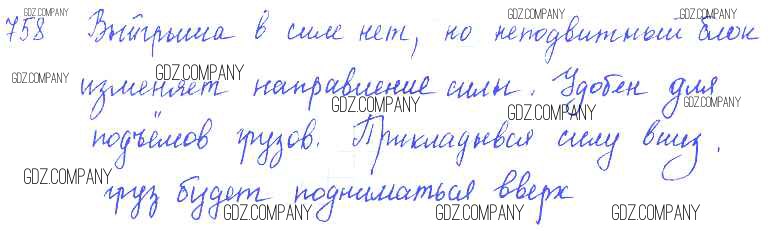 GDZ.COMPANY GDZ.COMPANY GDZ.COMPANY
758 Выйгрыша в силе нет, но неподвижный блок
GDZ.COMPANY GDZ.COMPANY
изменяет направление силы. Удобен для
GDZ.COMPANY GDZ.COMPANY GDZ.COMPANY
подъёмов грузов. Прикладывая силу вниз,
GDZ.COMPANY
груз будет подниматься вверх
GDZ.COMPANY GDZ.COMPANY GDZ.COMPANY